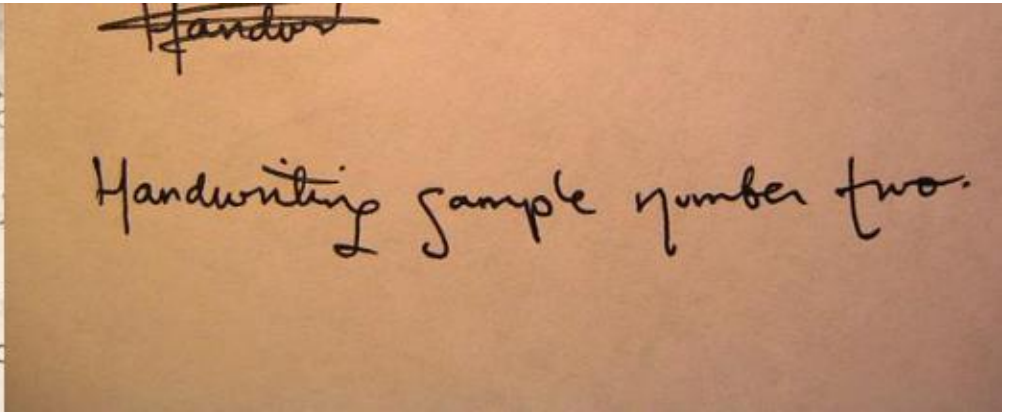 Handwr
Handwriting sample number two.